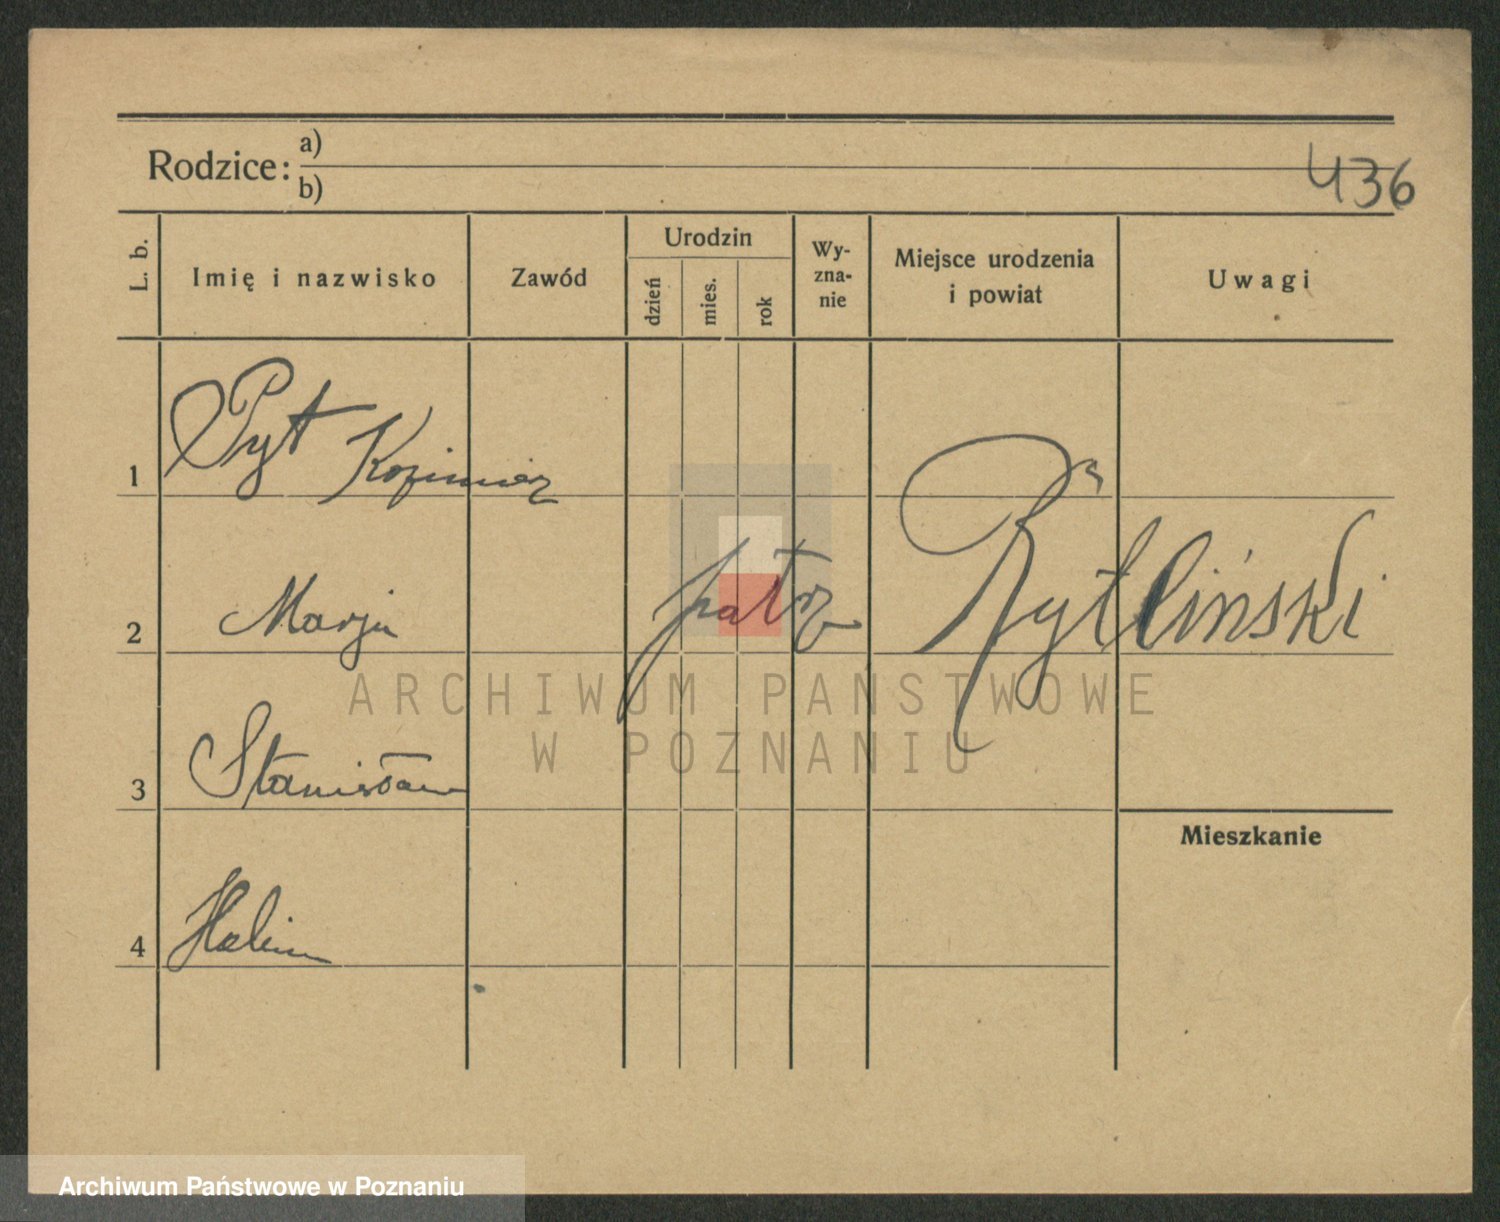 Rodzice: a)
b)
436
L. b.
Imię i nazwisko
Zawód
Urodzin
dzień
mies.
rok
Wy-
zna-
nie
Miejsce urodzenia
i powiat
Uwagi
1 Pyt Kazimierz
2 Marja patrz Rytliński
3 Stanisław
4 Halina
Mieszkanie
ARCHIWUM PAŃSTWOWE
W POZNANIU
Archiwum Państwowe w Poznaniu